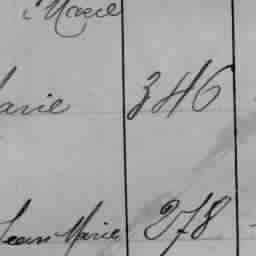 Marie
arie 346
Jean Marie 278